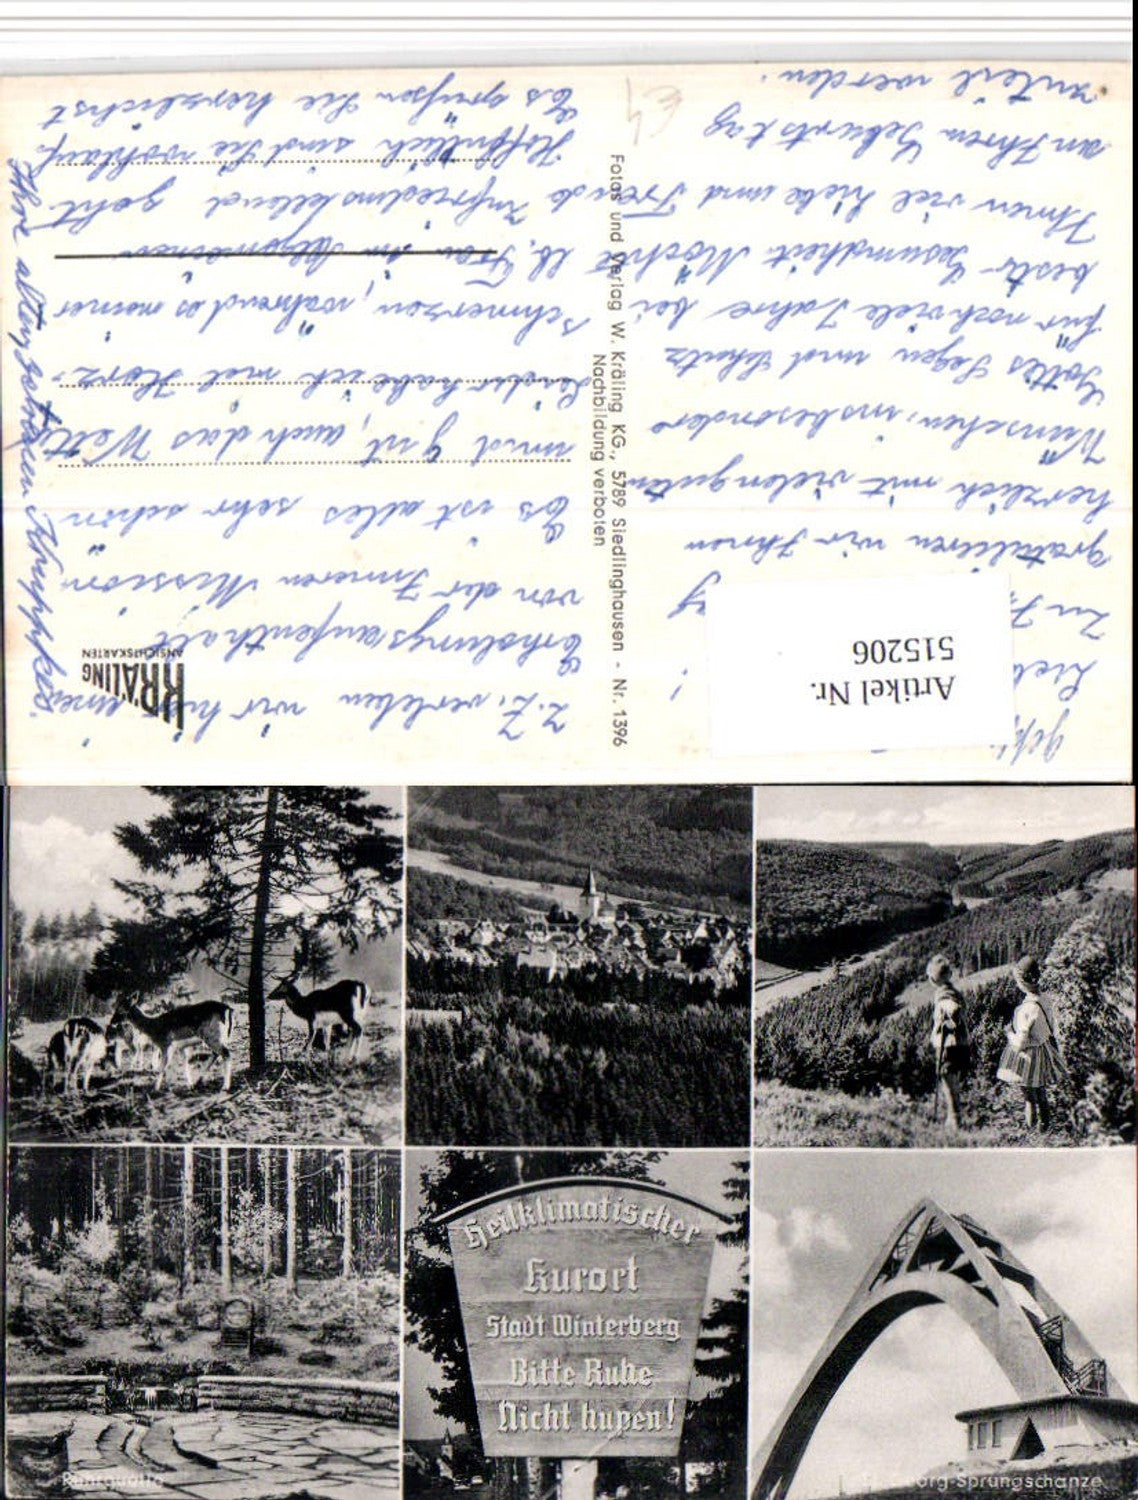 Lie !
Zu I g
gratulieren wir Ihnen
herzlich mit vielen guten
Wünschen, insbesondere
Gottes Segen und Schutz
für noch viele Jahre bei
bester Gesundheit. Möchte
Ihnen viel Liebe und Freude
an Ihrem Geburtstag
zuteil werden.
z. Z. verleben wir hier einen
Erholungsaufenthalt
von der Inneren Mission
Es ist alles sehr schön
und gut, auch das Wetter
Leider habe ich mal Herz-
schmerzen, während es meiner
lb. Frau im Allgemeinen
zufriedenstellend geht
Hoffentlich sind Sie wohlauf
Es grüßen Sie herzlichst
Ihre alten
Artikel Nr.
515206
Fotos und Verlag W. Kräling KG., 5789 Siedlinghausen - Nr. 1396
Nachbildung verboten
KRÄLING
ANSICHTSKARTEN
Heilklimatischer
Kurort
Stadt Winterberg
Bitte Ruhe
Nicht hupen!
Ruhrquelle
org-Sprungschanze